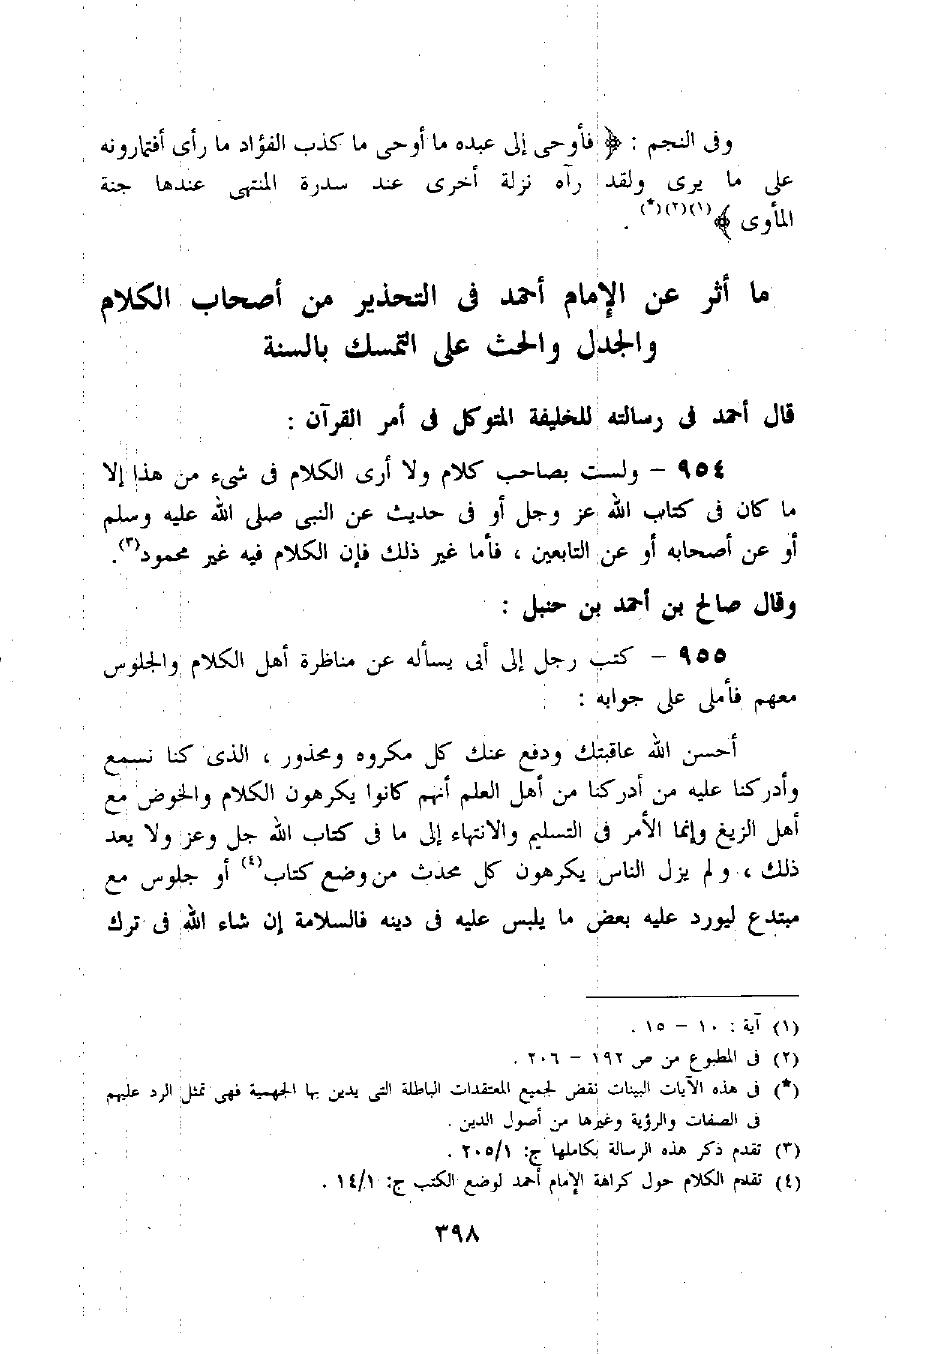 وفى النجم : ﴿ فأوحى إلى عبده ما أوحى ما كذب الفؤاد ما رأى أفتمارونه
على ما يرى ولقد رآه نزلة أخرى عند سدرة المنتهى عندها جنة
المأوى ﴾(١)(٢)(*) .
ما أثر عن الإمام أحمد فى التحذير من أصحاب الكلام
والجدل والحث على التمسك بالسنة
قال أحمد فى رسالته للخليفة المتوكل فى أمر القرآن :
٩٥٤ – ولست بصاحب كلام ولا أرى الكلام فى شىء من هذا إلا
ما كان فى كتاب الله عز وجل أو فى حديث عن النبى صلى الله عليه وسلم
أو عن أصحابه أو عن التابعين ، فأما غير ذلك فإن الكلام فيه غير محمود(٣).
وقال صالح بن أحمد بن حنبل :
٩٥٥ – كتب رجل إلى أبى يسأله عن مناظرة أهل الكلام والجلوس
معهم فأملى على جوابه :
أحسن الله عاقبتك ودفع عنك كل مكروه ومحذور ، الذى كنا نسمع
وأدركنا عليه من أدركنا من أهل العلم أنهم كانوا يكرهون الكلام والخوض مع
أهل الزيغ وإنما الأمر فى التسليم والانتهاء إلى ما فى كتاب الله جل وعز ولا يعد
ذلك ، ولم يزل الناس يكرهون كل محدث من وضع كتاب(٤) أو جلوس مع
مبتدع ليورد عليه بعض ما يلبس عليه فى دينه فالسلامة إن شاء الله فى ترك
(١) آية : ١٠ – ١٥ .
(٢) فى المطبوع من ص ١٩٢ – ٢٠٦ .
(*) فى هذه الآيات البينات نقض لجميع المعتقدات الباطلة التى يدين بها الجهمية فهى تمثل الرد عليهم
فى الصفات والرؤية وغيرها من أصول الدين .
(٣) تقدم ذكر هذه الرسالة بكاملها ج: ٢٠٥/١ .
(٤) تقدم الكلام حول كراهة الإمام أحمد لوضع الكتب ج: ١٤/١ .
٣٩٨